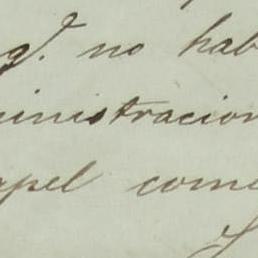 qᵈ. no hab
inistracion
apel come